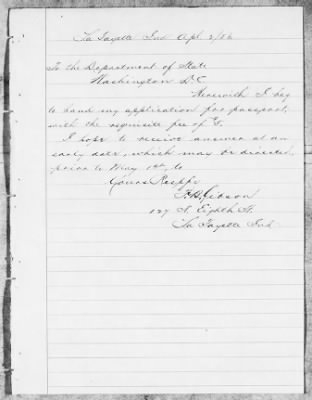 La Fayette Ind Apl. 2/86
To the Department of State
Washington D.C.
Herewith I beg
to hand my application for passport,
with the requisite fee of
I hope to receive answer at an
early date, which may be directed,
prior to May 1st, to
Yours Respfy
F. B. Gibson
127 N. Eighth St.
La Fayette Ind